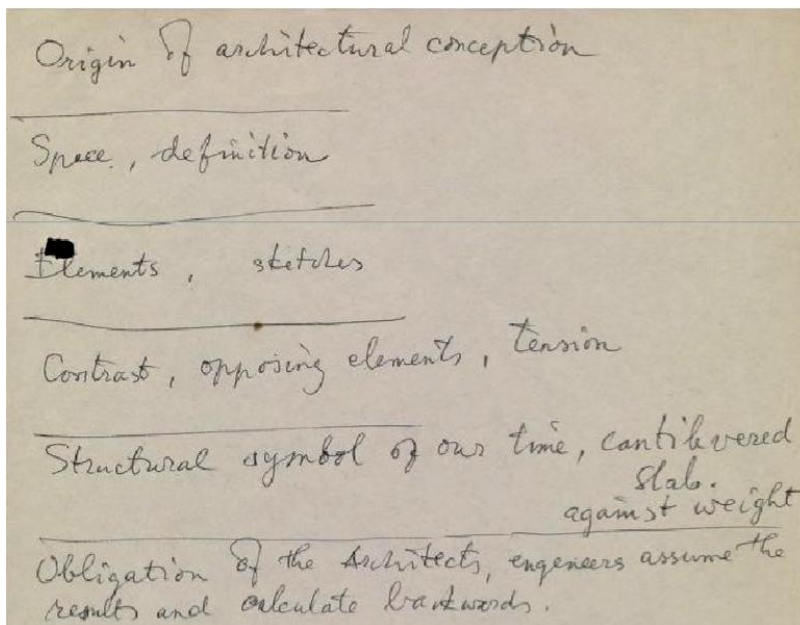 Origin of architectural conception
Space, definition
Elements, sketches
Contrast, opposing elements, tension
Structural symbol of our time, cantilevered
slab.
against weight
Obligation of the Architects, engeneers assume the
results and calculate backwords.